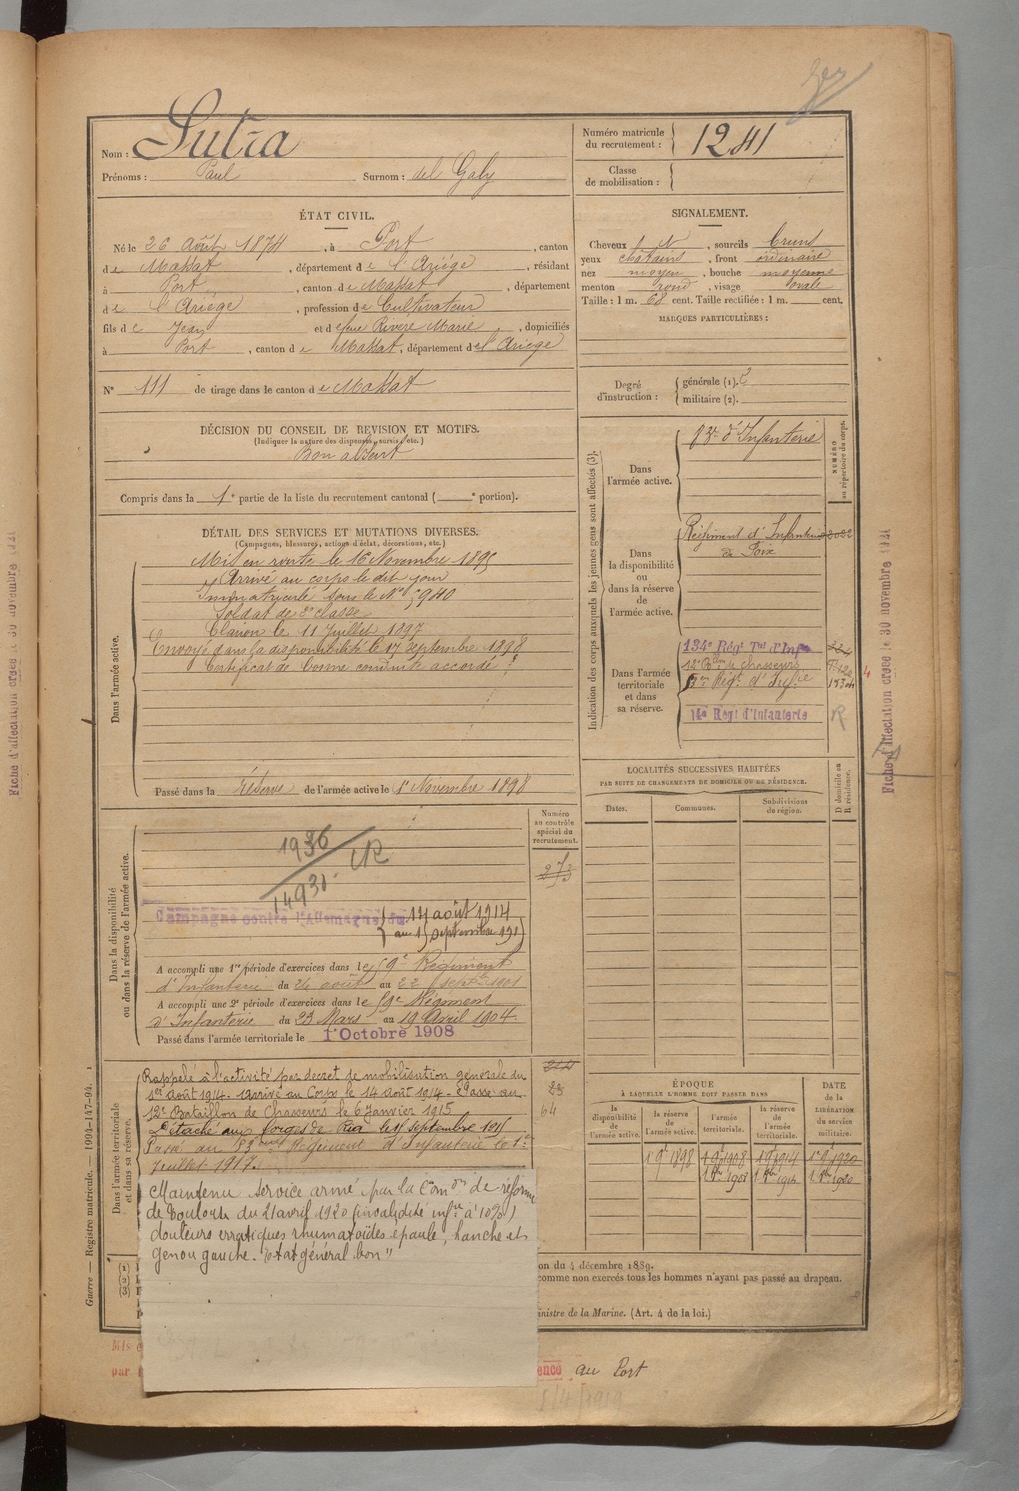 Nom : Sutra
Prénoms : Paul Surnom : del Gaby
Numéro matricule du recrutement : 1241
Classe de mobilisation :
ÉTAT CIVIL.
Né le 26 Août 1874, à Port, canton
de Massat, département de l'Ariège, résidant
à Port, canton de Massat, département
de l'Ariège, profession de Cultivateur
fils de Jean et d efeue Rivere Marie, domiciliés
à Port, canton de Massat, département de l'Ariège
N° 111 de tirage dans le canton de Massat
SIGNALEMENT.
Cheveux et N, sourcils bruns
yeux chatains, front ordinaire
nez moyen, bouche moyenne
menton rond, visage ovale
Taille : 1 m. 68 cent. Taille rectifiée : 1 m. cent.
MARQUES PARTICULIÈRES :
Degré d'instruction : générale (1). 2
militaire (2).
DÉCISION DU CONSEIL DE REVISION ET MOTIFS.
(Indiquer la nature des dispenses, sursis, etc.)
Bon absent
Compris dans la 1e partie de la liste du recrutement cantonal ( e portion).
DÉTAIL DES SERVICES ET MUTATIONS DIVERSES.
(Campagnes, blessures, actions d'éclat, décorations, etc.)
Dans l'armée active.
Mis en route le 16 Novembre 1895
Arrivé au corps le dit jour
Immatriculé sous le N° 5940
Soldat de 2e classe
Clairon le 11 Juillet 1897
Envoyé dans la disponibilité le 17 Septembre 1898
Certificat de bonne conduite accordé
Passé dans la réserve de l'armée active le 1er Novembre 1898
Indication des corps auxquels les jeunes gens sont affectés (3).
NUMÉRO au répertoire du corps.
Dans l'armée active.
83e d'Infanterie
Dans la disponibilité ou dans la réserve de l'armée active.
Régiment d'Infanterie 2022
de Foix
Dans l'armée territoriale et dans sa réserve.
134e Régt Tal d'Infie
12e Bon de Chasseurs
Régt d'Infie 15304
14e Régt d'Infanterie R
LOCALITÉS SUCCESSIVES HABITÉES
PAR SUITE DE CHANGEMENTS DE DOMICILE OU DE RÉSIDENCE.
Dates. Communes. Subdivisions de région. D domicile ou R résidence.
Dans la disponibilité ou dans la réserve de l'armée active.
Numéro au contrôle spécial du recrutement.
273
1936
14931 CR
Campagne contre l'Allemagne du 14 août 1914
au 15 septembre 1915
A accompli une 1re période d'exercices dans le 59e Régiment
d'Infanterie du 26 août au 22 septe 1901
A accompli une 2e période d'exercices dans le 59e Régiment
d'Infanterie du 23 Mars au 19 Avril 1904
Passé dans l'armée territoriale le 1er Octobre 1908
Dans l'armée territoriale et dans sa réserve.
Rappelé à l'activité par decret de mobilisation générale du
1er août 1914. Arrivé au Corps le 14 août 1914. Passé au
12e Bataillon de Chasseurs le 6 Janvier 1915
Détaché aux forges de Ria le 15 septembre 1915
Passé au 83eme Régiment d'Infanterie le 1er
Juillet 1917.
23
64
Maintenu service armé par la Comon de réforme
de Toulouse du 21 avril 1920 (invalidité infre à 10%)
douleurs erratiques rhumatoïdes épaule, hanche et
genou gauche. Etat général bon"
ÉPOQUE
À LAQUELLE L'HOMME DOIT PASSER DANS
la disponibilité de l'armée active. la réserve de l'armée active. l'armée territoriale. la réserve de l'armée territoriale.
DATE de la LIBÉRATION du service militaire.
1 9bre 1898 1 9bre 1908 1 9bre 1914 1 9bre 1920
1 8bre 1908 1 8bre 1914 1 8bre 1920
(1)
(2)
(3)
on du 4 décembre 1889.
comme non exercés tous les hommes n'ayant pas passé au drapeau.
inistre de la Marine. (Art. 4 de la loi.)
Mis
par
ence au Port
5/4/1919
Guerre — Registre matricule. — 1994-147-94.
Fiche d'affectation créée le 30 novembre 1921
Fiche d'affectation créée le 30 novembre 1921